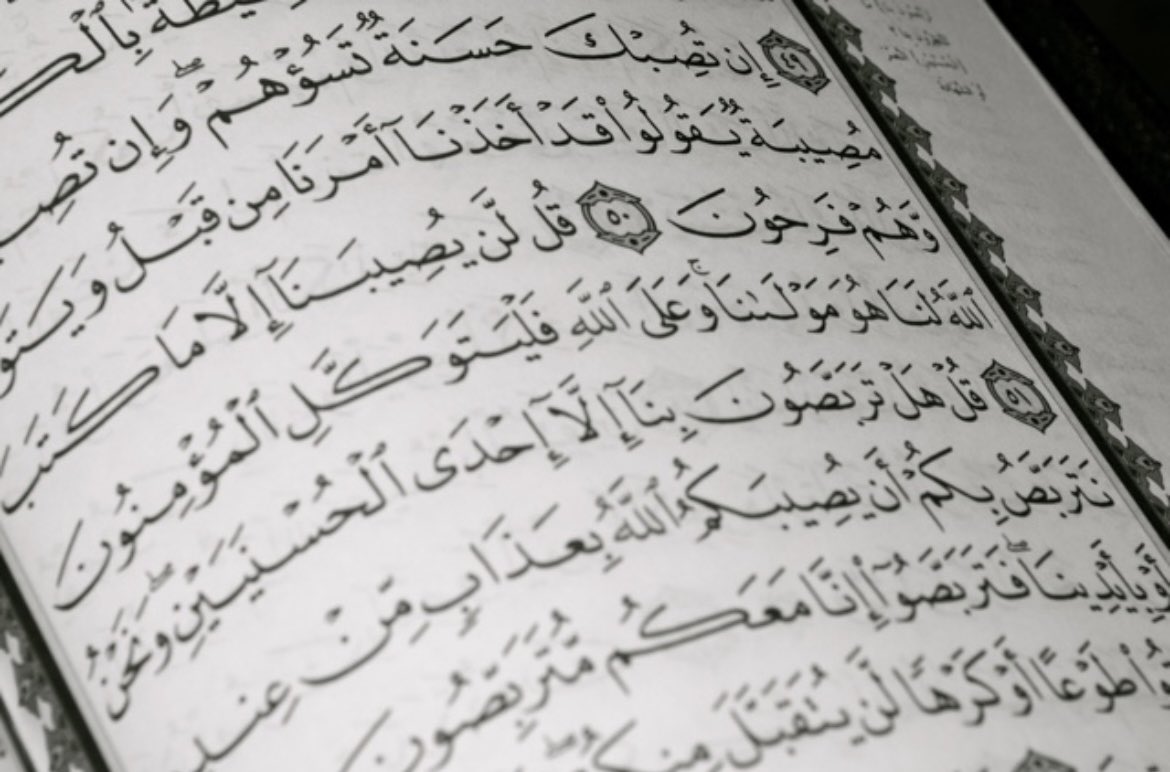 بِٱلْكَـ
٤٩ إِن تُصِبْكَ حَسَنَةٌ تَسُؤْهُمْ ۖ وَإِن تُصِبـ
مُصِيبَةٌ يَقُولُوا۟ قَدْ أَخَذْنَآ أَمْرَنَا مِن قَبْلُ وَيَتَوَ
وَّهُمْ فَرِحُونَ ٥٠ قُل لَّن يُصِيبَنَآ إِلَّا مَا كَتَبَ
ٱللَّهُ لَنَا هُوَ مَوْلَىٰنَا ۚ وَعَلَى ٱللَّهِ فَلْيَتَوَكَّلِ ٱلْمُؤْمِنُونَ
٥١ قُلْ هَلْ تَرَبَّصُونَ بِنَآ إِلَّآ إِحْدَى ٱلْحُسْنَيَيْنِ ۖ وَنَحْنُ
نَتَرَبَّصُ بِكُمْ أَن يُصِيبَكُمُ ٱللَّهُ بِعَذَابٍ مِّنْ عِندِ
بِأَيْدِينَا ۖ فَتَرَبَّصُوٓا۟ إِنَّا مَعَكُم مُّتَرَبِّصُونَ
طَوْعًا أَوْ كَرْهًا لَّن يُتَقَبَّلَ مِنكُمْ ۖ